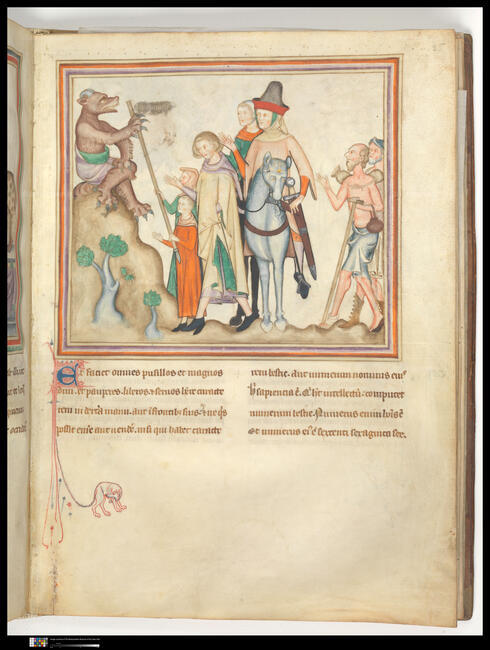 Et faciet omnes pusillos et magnos
diui. et pauperes. liberos. & seruos hre caracte
rem in dextra manu. aut i frontib; suis. & ne qs
possit emere aut uendere. nisi qui habet caracte
rem bestie. aut numerum nominis eius
hic sapiencia e. Qi hr intellectu. computet
numerum bestie. Numerus enim hois e
et numerus ei e sexcenti sexaginta sex.